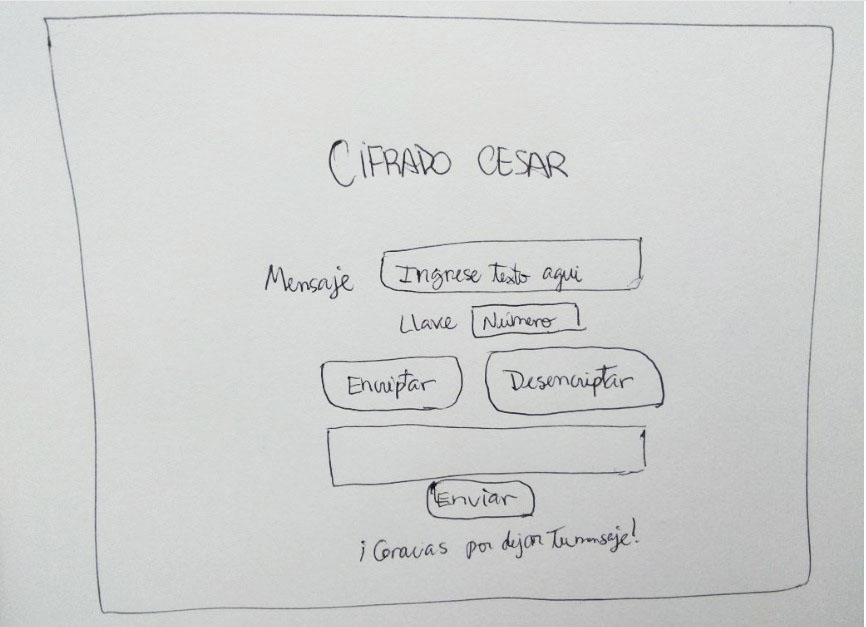 CIFRADO CESAR
Mensaje Ingrese texto aqui
Llave Número
Encriptar Desencriptar
Enviar
¡Gracias por dejar Tu mensaje!